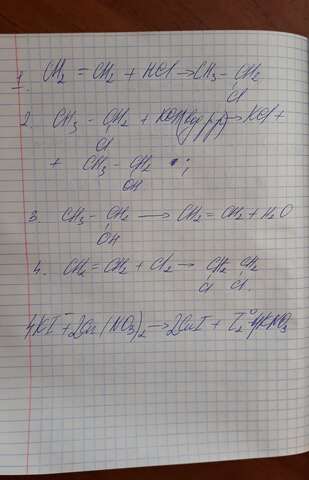 1. CH₂ = CH₂ + HCl → CH₃ - CH₂
Cl
2. CH₃ - CH₂ + KOH(вод рр) → KCl +
Cl
+ CH₃ - CH₂ ;
OH
3. CH₃ - CH₂ → CH₂ = CH₂ + H₂O
OH
4. CH₂ = CH₂ + Cl₂ → CH₂ CH₂
Cl Cl
4KI + 2Cu(NO₃)₂ → 2CuI + I₂ 4KNO₃